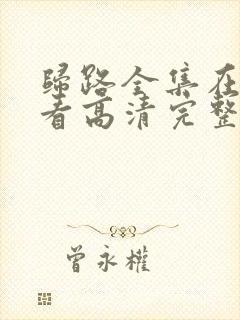 归路全集在
看高清完整
曾永权